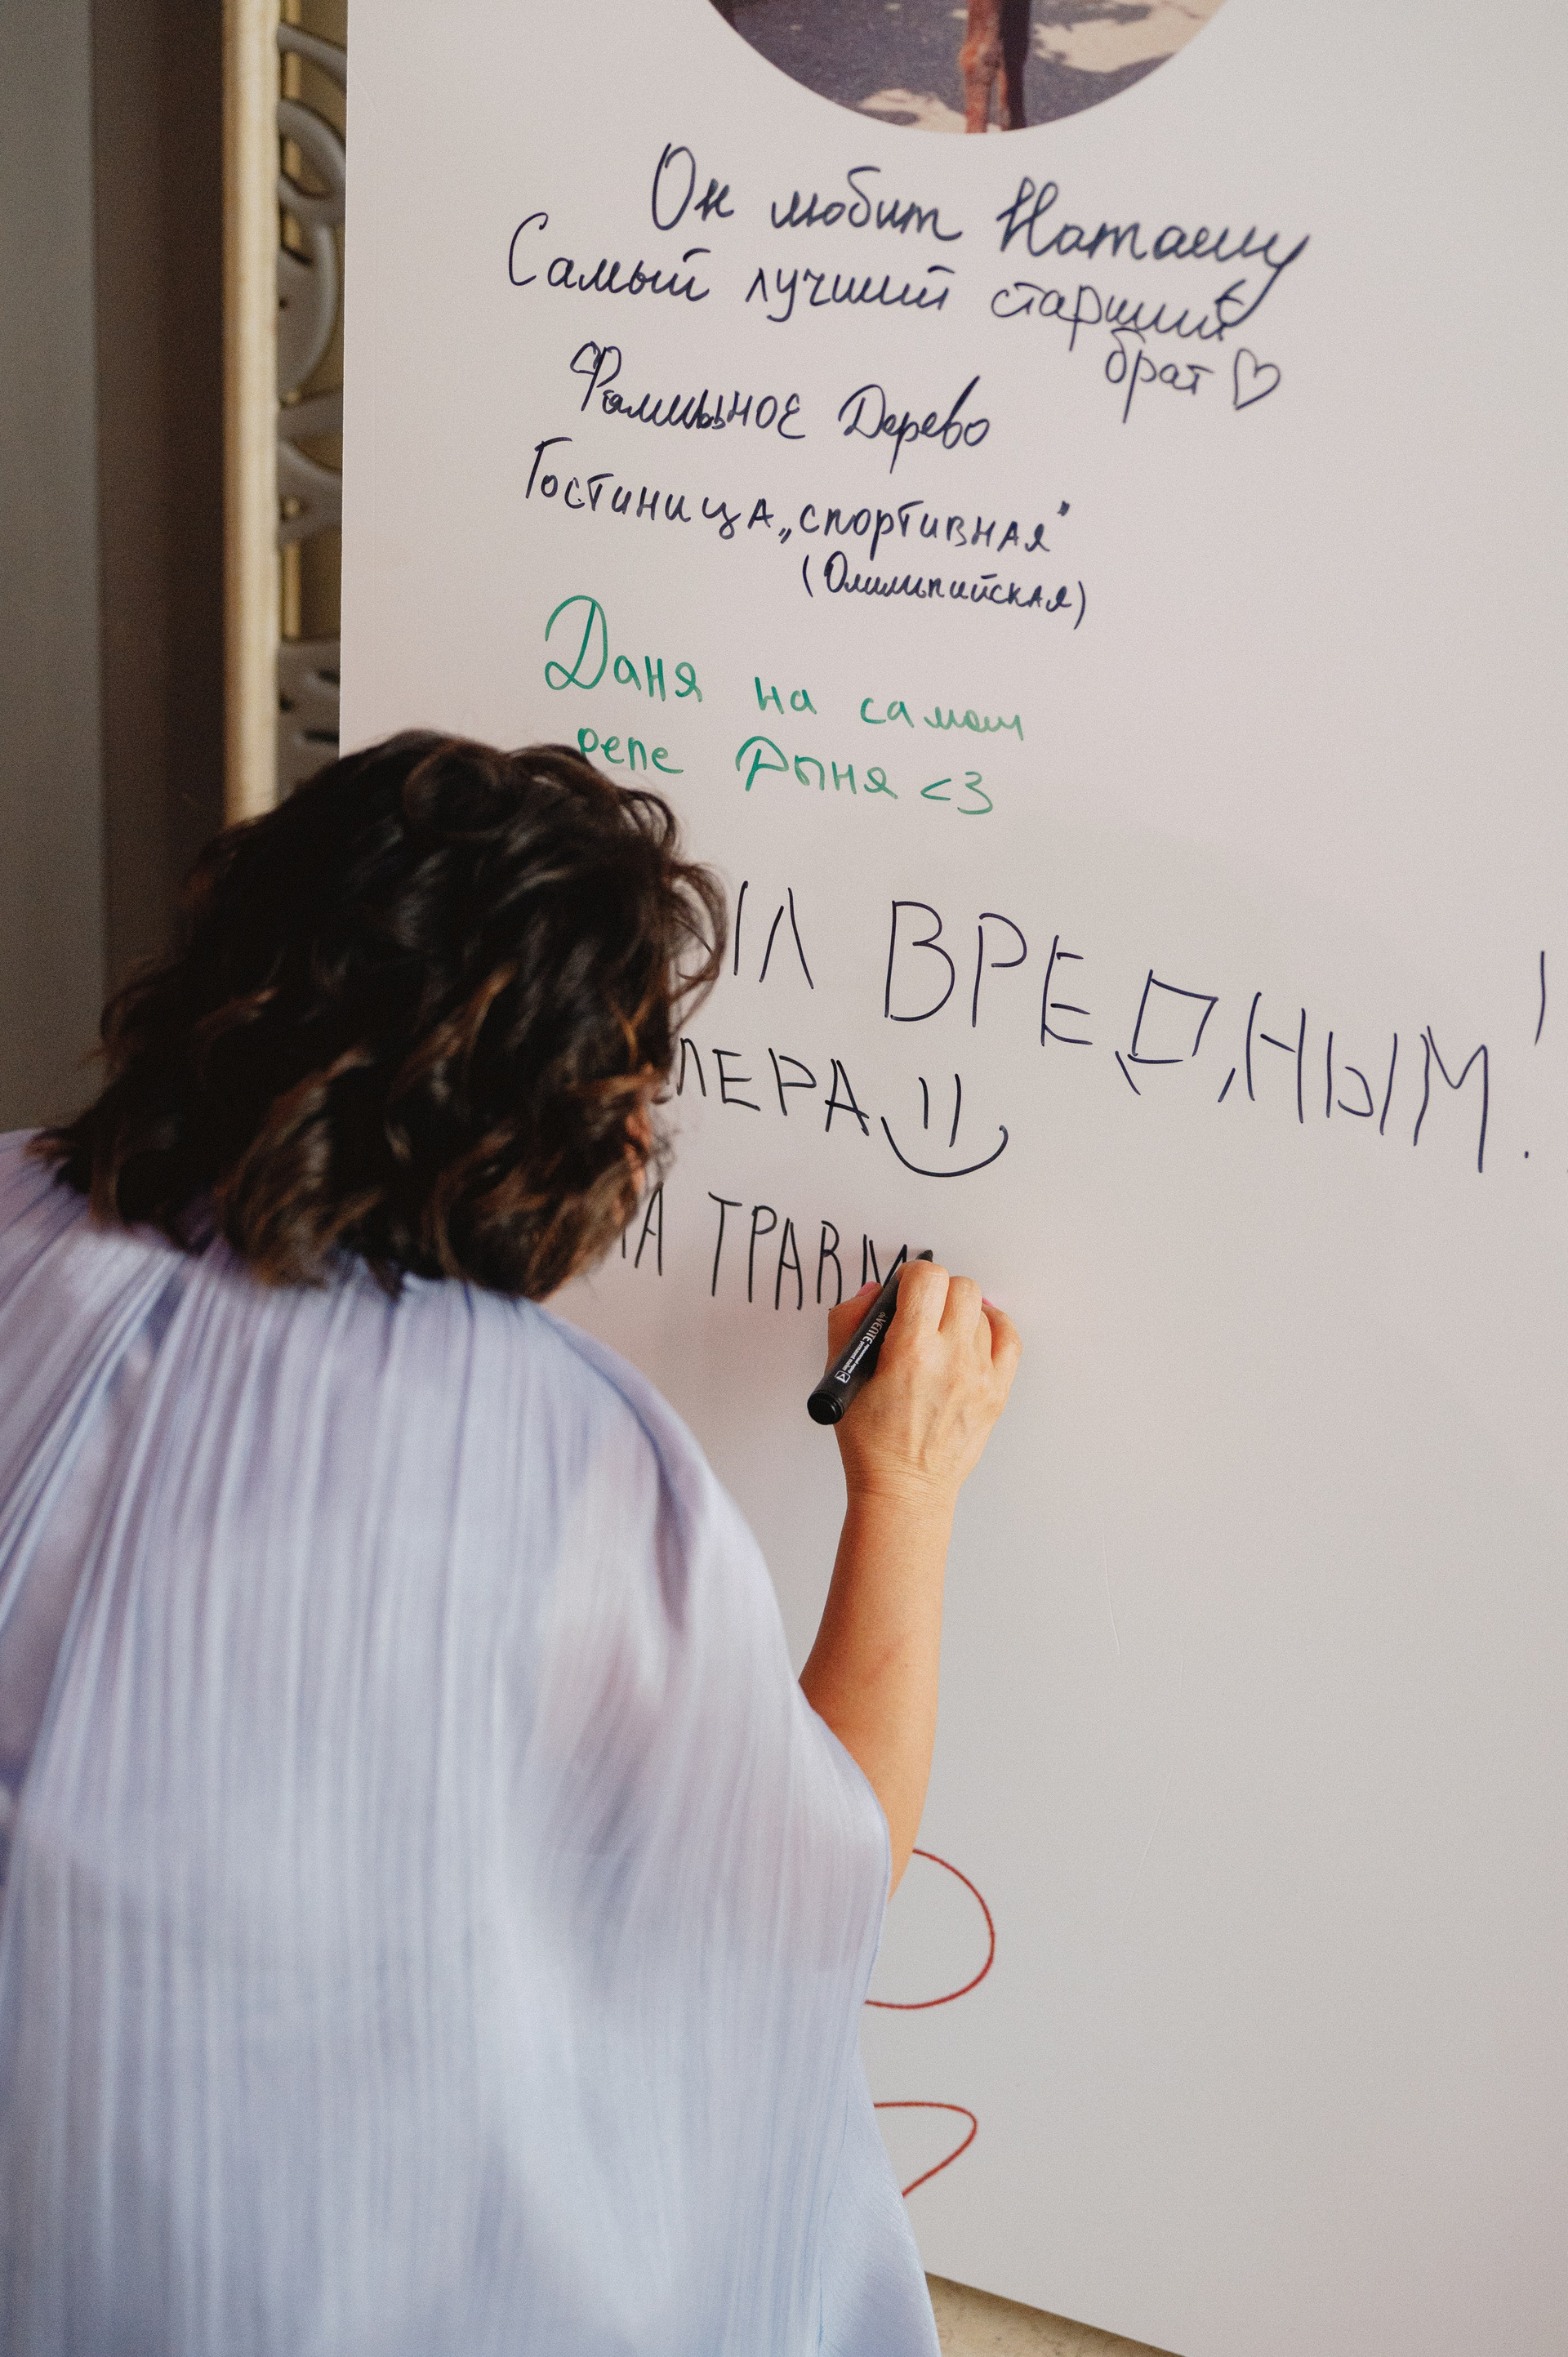 Он любит Наташу
Самый лучший старший
брат ♡
Фамильное Дерево
Гостиница „спортивная"
(Олимпийская)
Даня на самом
репе Дыня <3
ВРЕДНЫМ!
ПЕРА
ТРАВМ